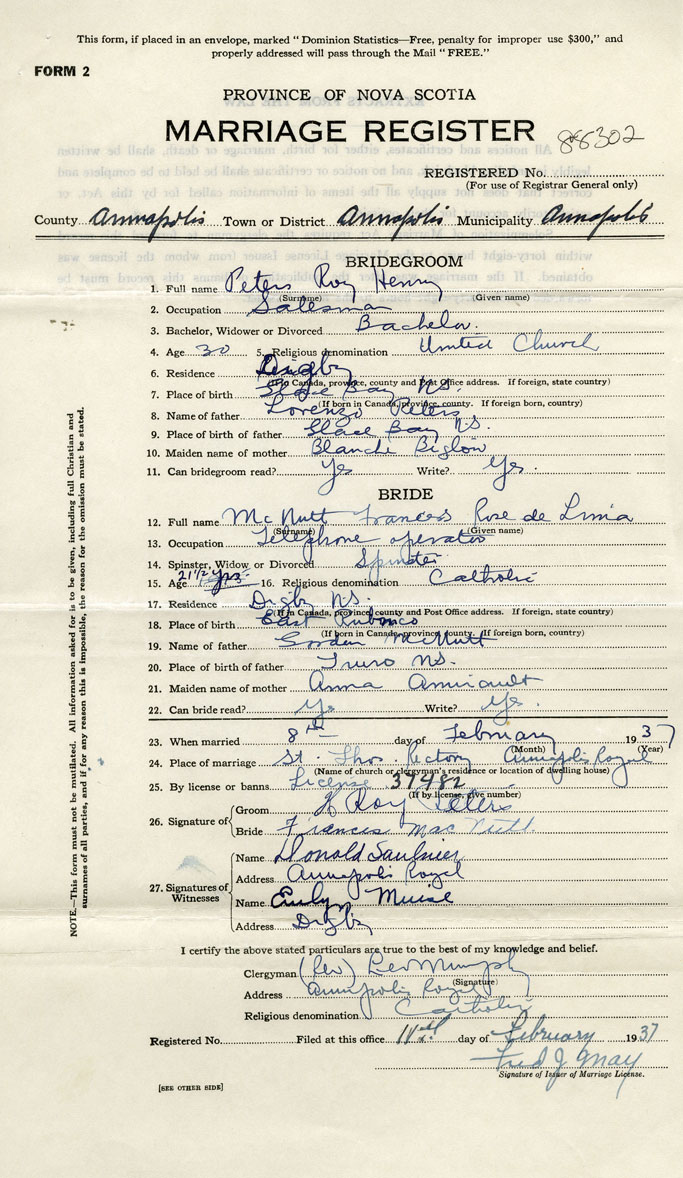 This form, if placed in an envelope, marked "Dominion Statistics—Free, penalty for improper use $300," and
properly addressed will pass through the Mail "FREE."
FORM 2
PROVINCE OF NOVA SCOTIA
MARRIAGE REGISTER
88302
REGISTERED No.
(For use of Registrar General only)
County Annapolis Town or District Annapolis Municipality Annapolis
BRIDEGROOM
1. Full name Peters Roy Henry
(Surname) (Given name)
2. Occupation Salesman
3. Bachelor, Widower or Divorced Bachelor.
4. Age 30 5. Religious denomination United Church
6. Residence Digby
(If in Canada, province, county and Post Office address. If foreign, state country)
7. Place of birth Glace Bay N.S.
(If born in Canada, province, county. If foreign born, country)
8. Name of father Lorenzo Peters
9. Place of birth of father Glace Bay N.S.
10. Maiden name of mother Blanche Biglow
11. Can bridegroom read? Yes Write? Yes.
BRIDE
12. Full name McNutt Frances Rose de Lima
(Surname) (Given name)
13. Occupation Telephone operator
14. Spinster, Widow or Divorced Spinster
15. Age 21 1/2 yrs 16. Religious denomination Catholic
17. Residence Digby N.S.
(If in Canada, province, county and Post Office address. If foreign, state country)
18. Place of birth East Pubnico
(If born in Canada, province, county. If foreign born, country)
19. Name of father Gordon McNutt
20. Place of birth of father Truro NS.
21. Maiden name of mother Anna Amirault
22. Can bride read? Yes Write? Yes.
23. When married 8th day of February 1937
(Month) (Year)
24. Place of marriage St. Thos. Rectory Annapolis Royal
(Name of church or clergyman's residence or location of dwelling house)
25. By license or banns License 37482
(If by license, give number)
26. Signature of
Groom H Roy Peters
Bride Frances MacNutt
27. Signatures of Witnesses
Name Donald Saulnier
Address Annapolis Royal
Name Emily Muise
Address Digby
I certify the above stated particulars are true to the best of my knowledge and belief.
Clergyman (Rev) Leo Murphy
(Signature)
Address Annapolis Royal
Religious denomination Catholic
Registered No. Filed at this office 11th day of February 1937
Fred J May
Signature of Issuer of Marriage License.
[SEE OTHER SIDE]
NOTE.—This form must not be mutilated. All information asked for is to be given, including full Christian and
surnames of all parties, and if for any reason this is impossible, the reason for the omission must be stated.